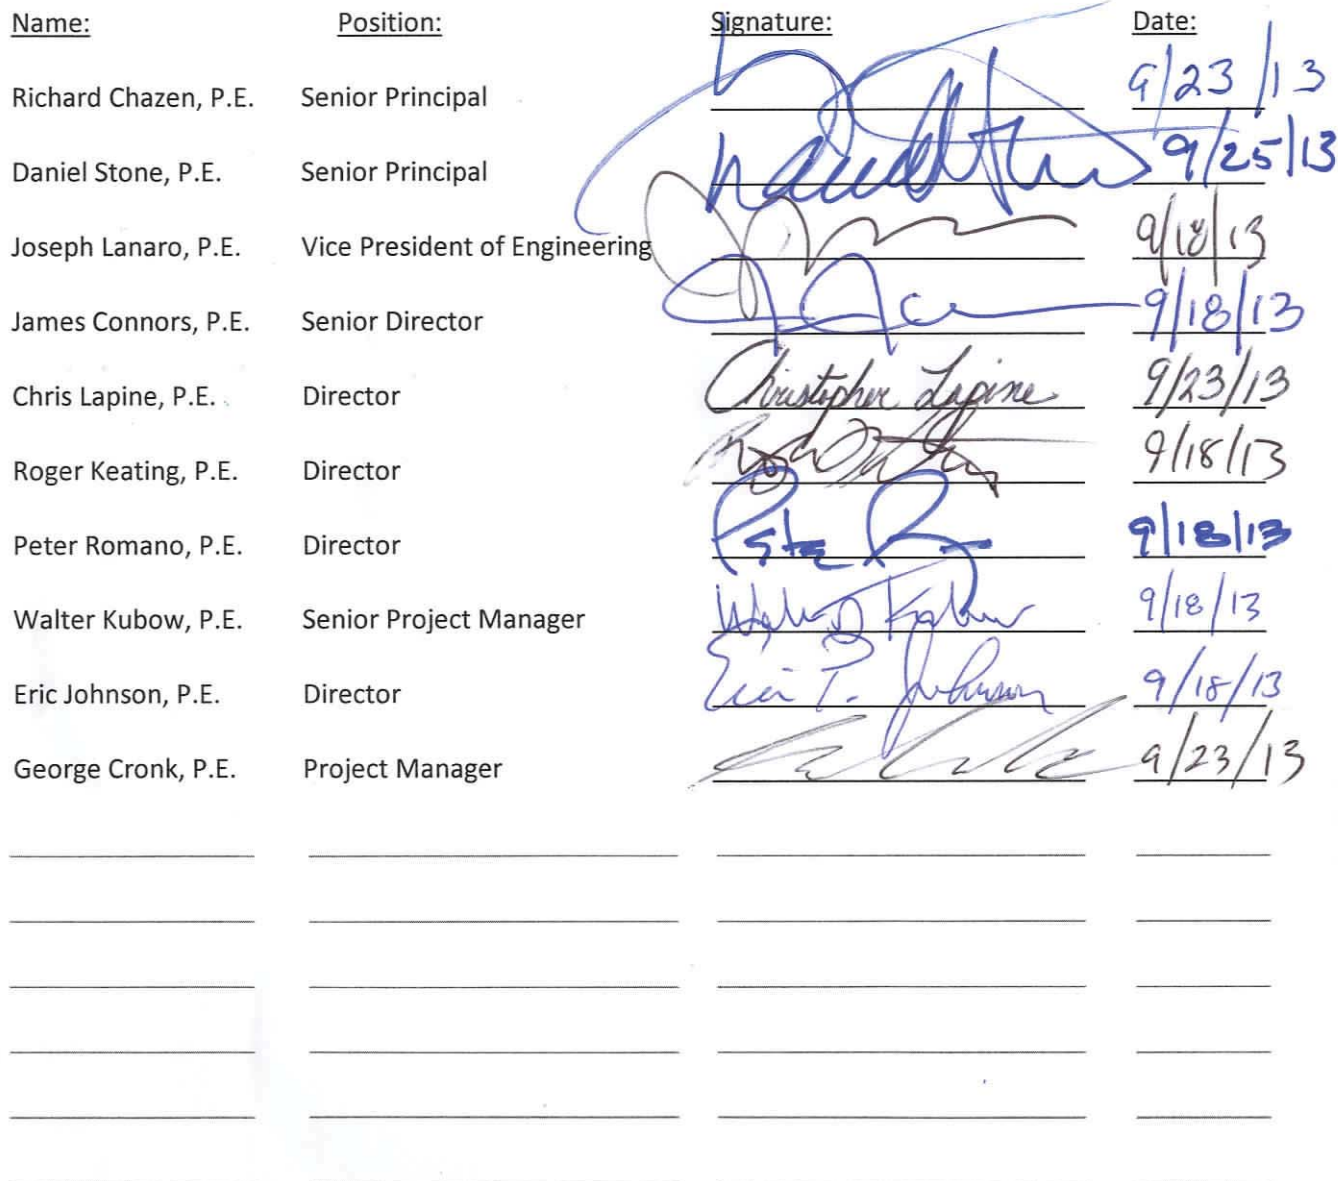 Name: Position: Signature: Date:
Richard Chazen, P.E. Senior Principal 9/23/13
Daniel Stone, P.E. Senior Principal 9/25/13
Joseph Lanaro, P.E. Vice President of Engineering 9/18/13
James Connors, P.E. Senior Director 9/18/13
Chris Lapine, P.E. Director Christopher Lapine 9/23/13
Roger Keating, P.E. Director 9/18/13
Peter Romano, P.E. Director 9/18/13
Walter Kubow, P.E. Senior Project Manager 9/18/13
Eric Johnson, P.E. Director Eric P. Johnson 9/18/13
George Cronk, P.E. Project Manager 9/23/13